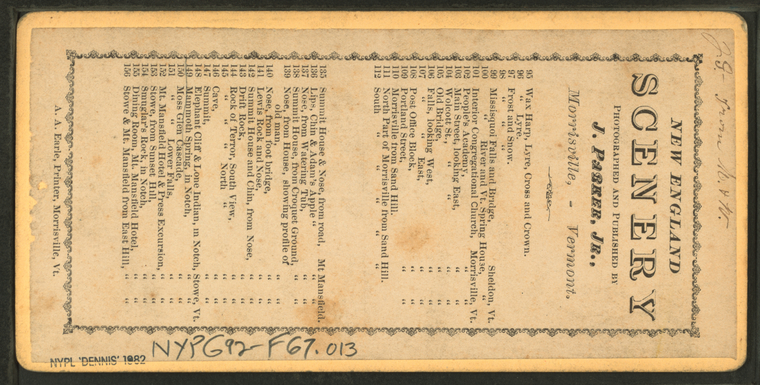 NEW ENGLAND
SCENERY
PHOTOGRAPHED AND PUBLISHED BY
J. PARKER, JR.,
Morrisville, - Vermont.
95 Wax Harp, Lyre, Cross and Crown.
96 " Lyre.
97 Frost and Snow.
98 " "
99 Missisquoi Falls and Brydge, Sheldon, Vt.
100 " River and Vt. Spring House, "
101 Interior Congregational Church, Morrisville, Vt.
102 People's Academy, " "
103 Main Street, looking East, " "
104 Wolcott St., " " "
105 Old Bridge, " "
106 Falls, looking West, " "
107 " " East, " "
108 Post Office Block, " "
109 Portland Street, " "
110 Morrisville from Sand Hill.
111 North Part of Morrisville from Sand Hill.
112 South " " " "
135 Summit House & Nose, from road, Mt Mansfield.
136 Lips, Chin & Adam's Apple " "
137 Nose, from Watering Tub, " "
138 Summit House, from Croquet Ground, "
139 Nose, from House, showing profile of
old man, " "
140 Nose, from foot bridge, " "
141 Lewis Rock and Nose, " "
142 Summit House and Chin, from Nose, "
143 Drift Rock, " "
144 Rock of Terror, South View, " "
145 " " North " " "
146 Cave, " "
147 Summit, " "
148 Elephant Cliff & Lone Indian, in Notch, Stowe, Vt.
149 Mammoth Spring, in Notch, " "
150 Moss Glen Cascade, " "
151 " " Lower Falls, " "
152 Mt. Mansfield Hotel & Press Excursion, " "
153 Stowe, from Sunset Hill, " "
154 Smuggler's Rock, in Notch, " "
155 Dining Room, Mt. Mansfield Hotel, " "
156 Stowe & Mt. Mansfield from East Hill, " "
A. A. Earle, Printer, Morrisville, Vt.
NYPG92-F67.013
NYPL 'DENNIS' 1982